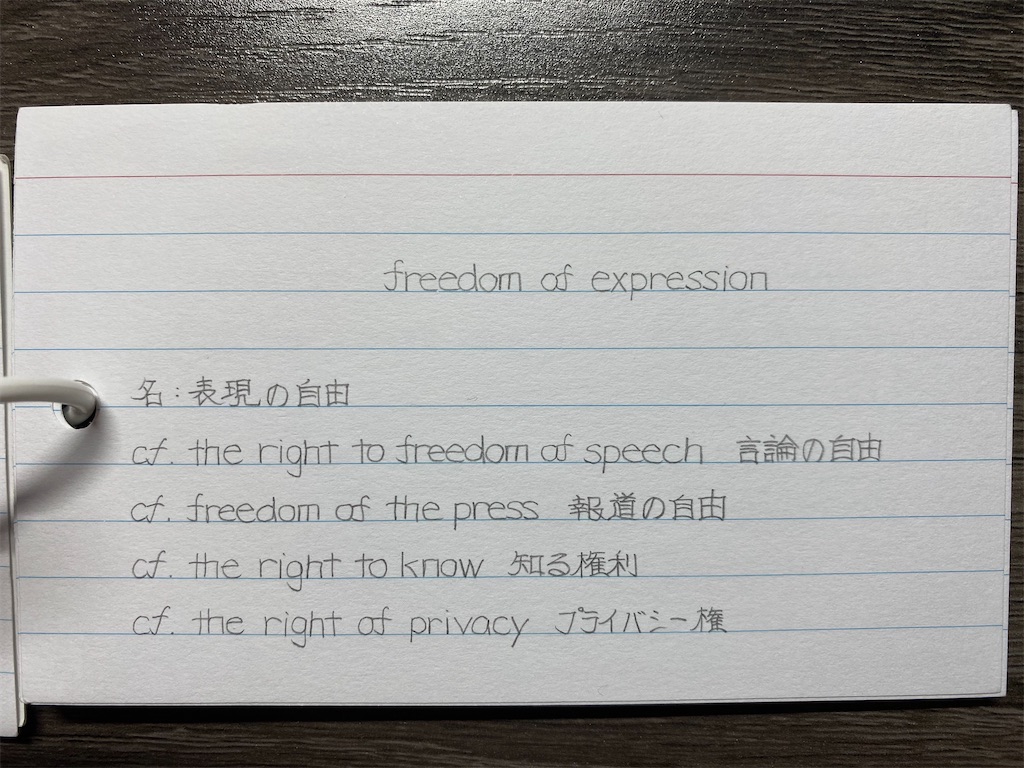 freedom of expression
名：表現の自由
cf. the right to freedom of speech 言論の自由
cf. freedom of the press 報道の自由
cf. the right to know 知る権利
cf. the right of privacy プライバシー権